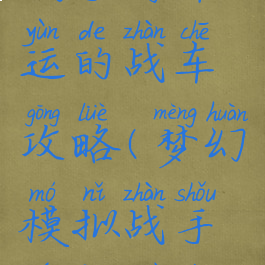 yùn de zhàn chē
运的战车
gōng lüè mèng huàn
攻略(梦幻
mó nǐ zhàn shǒu
模拟战手